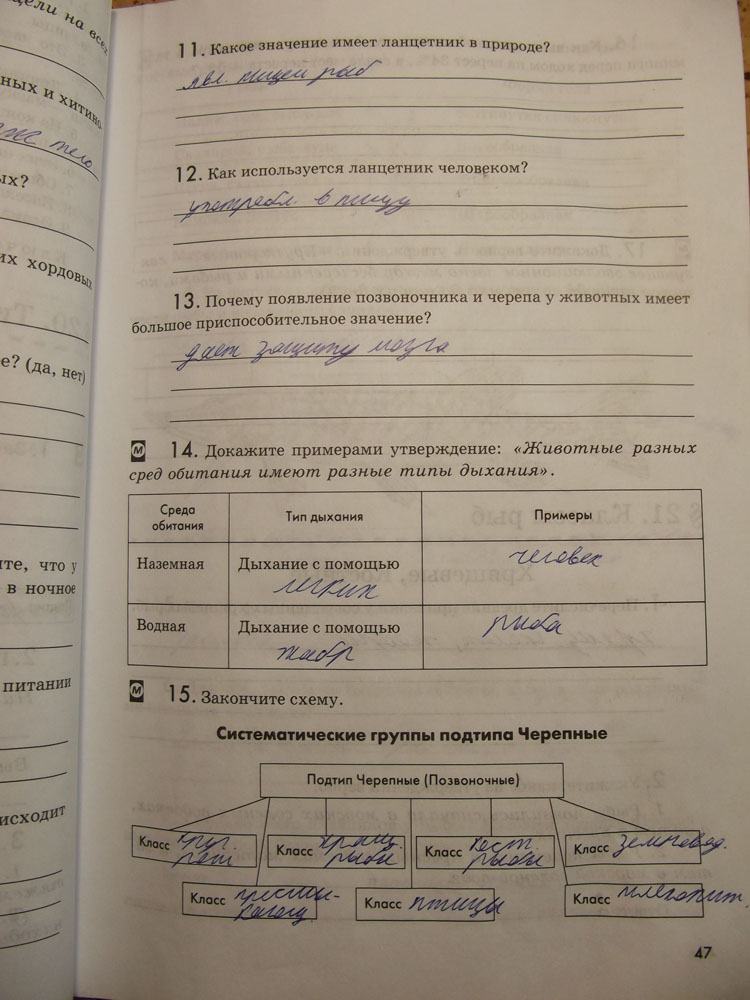 цели на всех
ных и хитино
тело
ых?
их хордовых
е? (да, нет)
те, что у
в ночное
питании
исходит
11. Какое значение имеет ланцетник в природе?
явл. пищей рыб
12. Как используется ланцетник человеком?
употребл. в пищу
13. Почему появление позвоночника и черепа у животных имеет
большое приспособительное значение?
дает защиту мозга
М 14. Докажите примерами утверждение: «Животные разных
сред обитания имеют разные типы дыхания».
Среда обитания Тип дыхания Примеры
Наземная Дыхание с помощью легких человек
Водная Дыхание с помощью жабр рыба
М 15. Закончите схему.
Систематические группы подтипа Черепные
Подтип Черепные (Позвоночные)
Класс круг. рот.
Класс хрящ. рыбы
Класс кост. рыбы
Класс земновод.
Класс пресмы-кающ
Класс птицы
Класс млекопит.
47